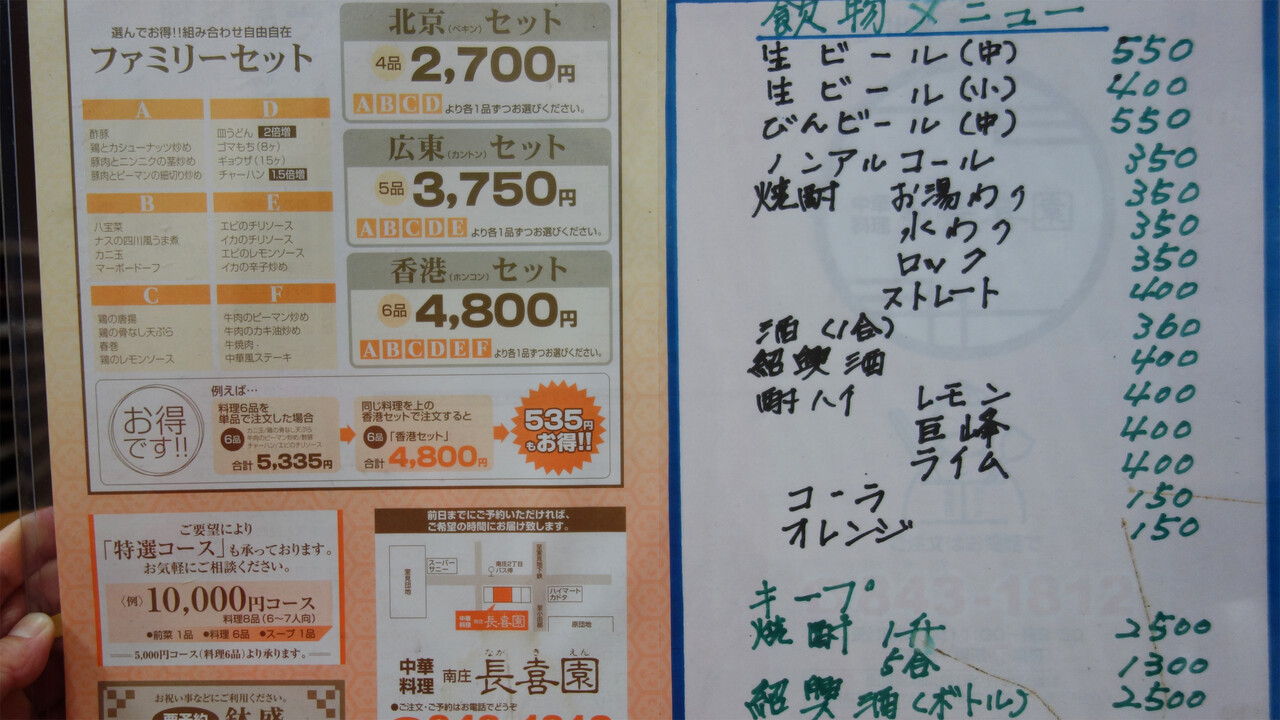 選んでお得!!組み合わせ自由自在
ファミリーセット
A
酢豚
鶏とカシューナッツ炒め
豚肉とニンニクの茎炒め
豚肉とピーマンの細切り炒め
D
皿うどん 2倍増
ゴマもち(8ヶ)
ギョウザ(15ヶ)
チャーハン 1.5倍増
B
八宝菜
ナスの四川風うま煮
カニ玉
マーボードーフ
E
エビのチリソース
イカのチリソース
エビのレモンソース
イカの辛子炒め
C
鶏の唐揚
鶏の骨なし天ぷら
春巻
鶏のレモンソース
F
牛肉のピーマン炒め
牛肉のカキ油炒め
牛焼肉
中華風ステーキ
北京(ペキン)セット
4品 2,700円
ABCD より各1品ずつお選びください。
広東(カントン)セット
5品 3,750円
ABCDE より各1品ずつお選びください。
香港(ホンコン)セット
6品 4,800円
ABCDEF より各1品ずつお選びください。
お得です!!
例えば…
料理6品を
単品で注文した場合
6品
カニ玉/鶏の骨なし天ぷら
牛肉のピーマン炒め/酢豚
チャーハン/エビのチリソース
合計 5,335円
同じ料理を上の
香港セットで注文すると
6品 「香港セット」
合計 4,800円
535円
もお得!!
ご要望により
「特選コース」も承っております。
お気軽にご相談ください。
〈例〉10,000円コース
料理8品(6〜7人向)
●前菜 1品 ●料理 6品 ●スープ 1品
5,000円コース(料理6品)より承ります。
お祝い事などにご利用ください。
要予約 鉢盛
前日までにご予約いただければ、
ご希望の時間にお届け致します。
スーパー
サニー
南庄2丁目
バス停
室見団地
ハイマート
カドタ
原団地
中華料理 南庄 長喜園
なが き えん
中華料理 南庄 長喜園
●ご注文・ご予約はお電話でどうぞ
飲物メニュー
生ビール(中) 550
生ビール(小) 400
びんビール(中) 550
ノンアルコール 350
焼酎 お湯わり 350
水わり 350
ロック 350
ストレート 400
酒(1合) 360
紹興酒 400
酎ハイ レモン 400
巨峰 400
ライム 400
コーラ 150
オレンジ 150
キープ
焼酎 1升 2500
5合 1300
紹興酒(ボトル) 2500